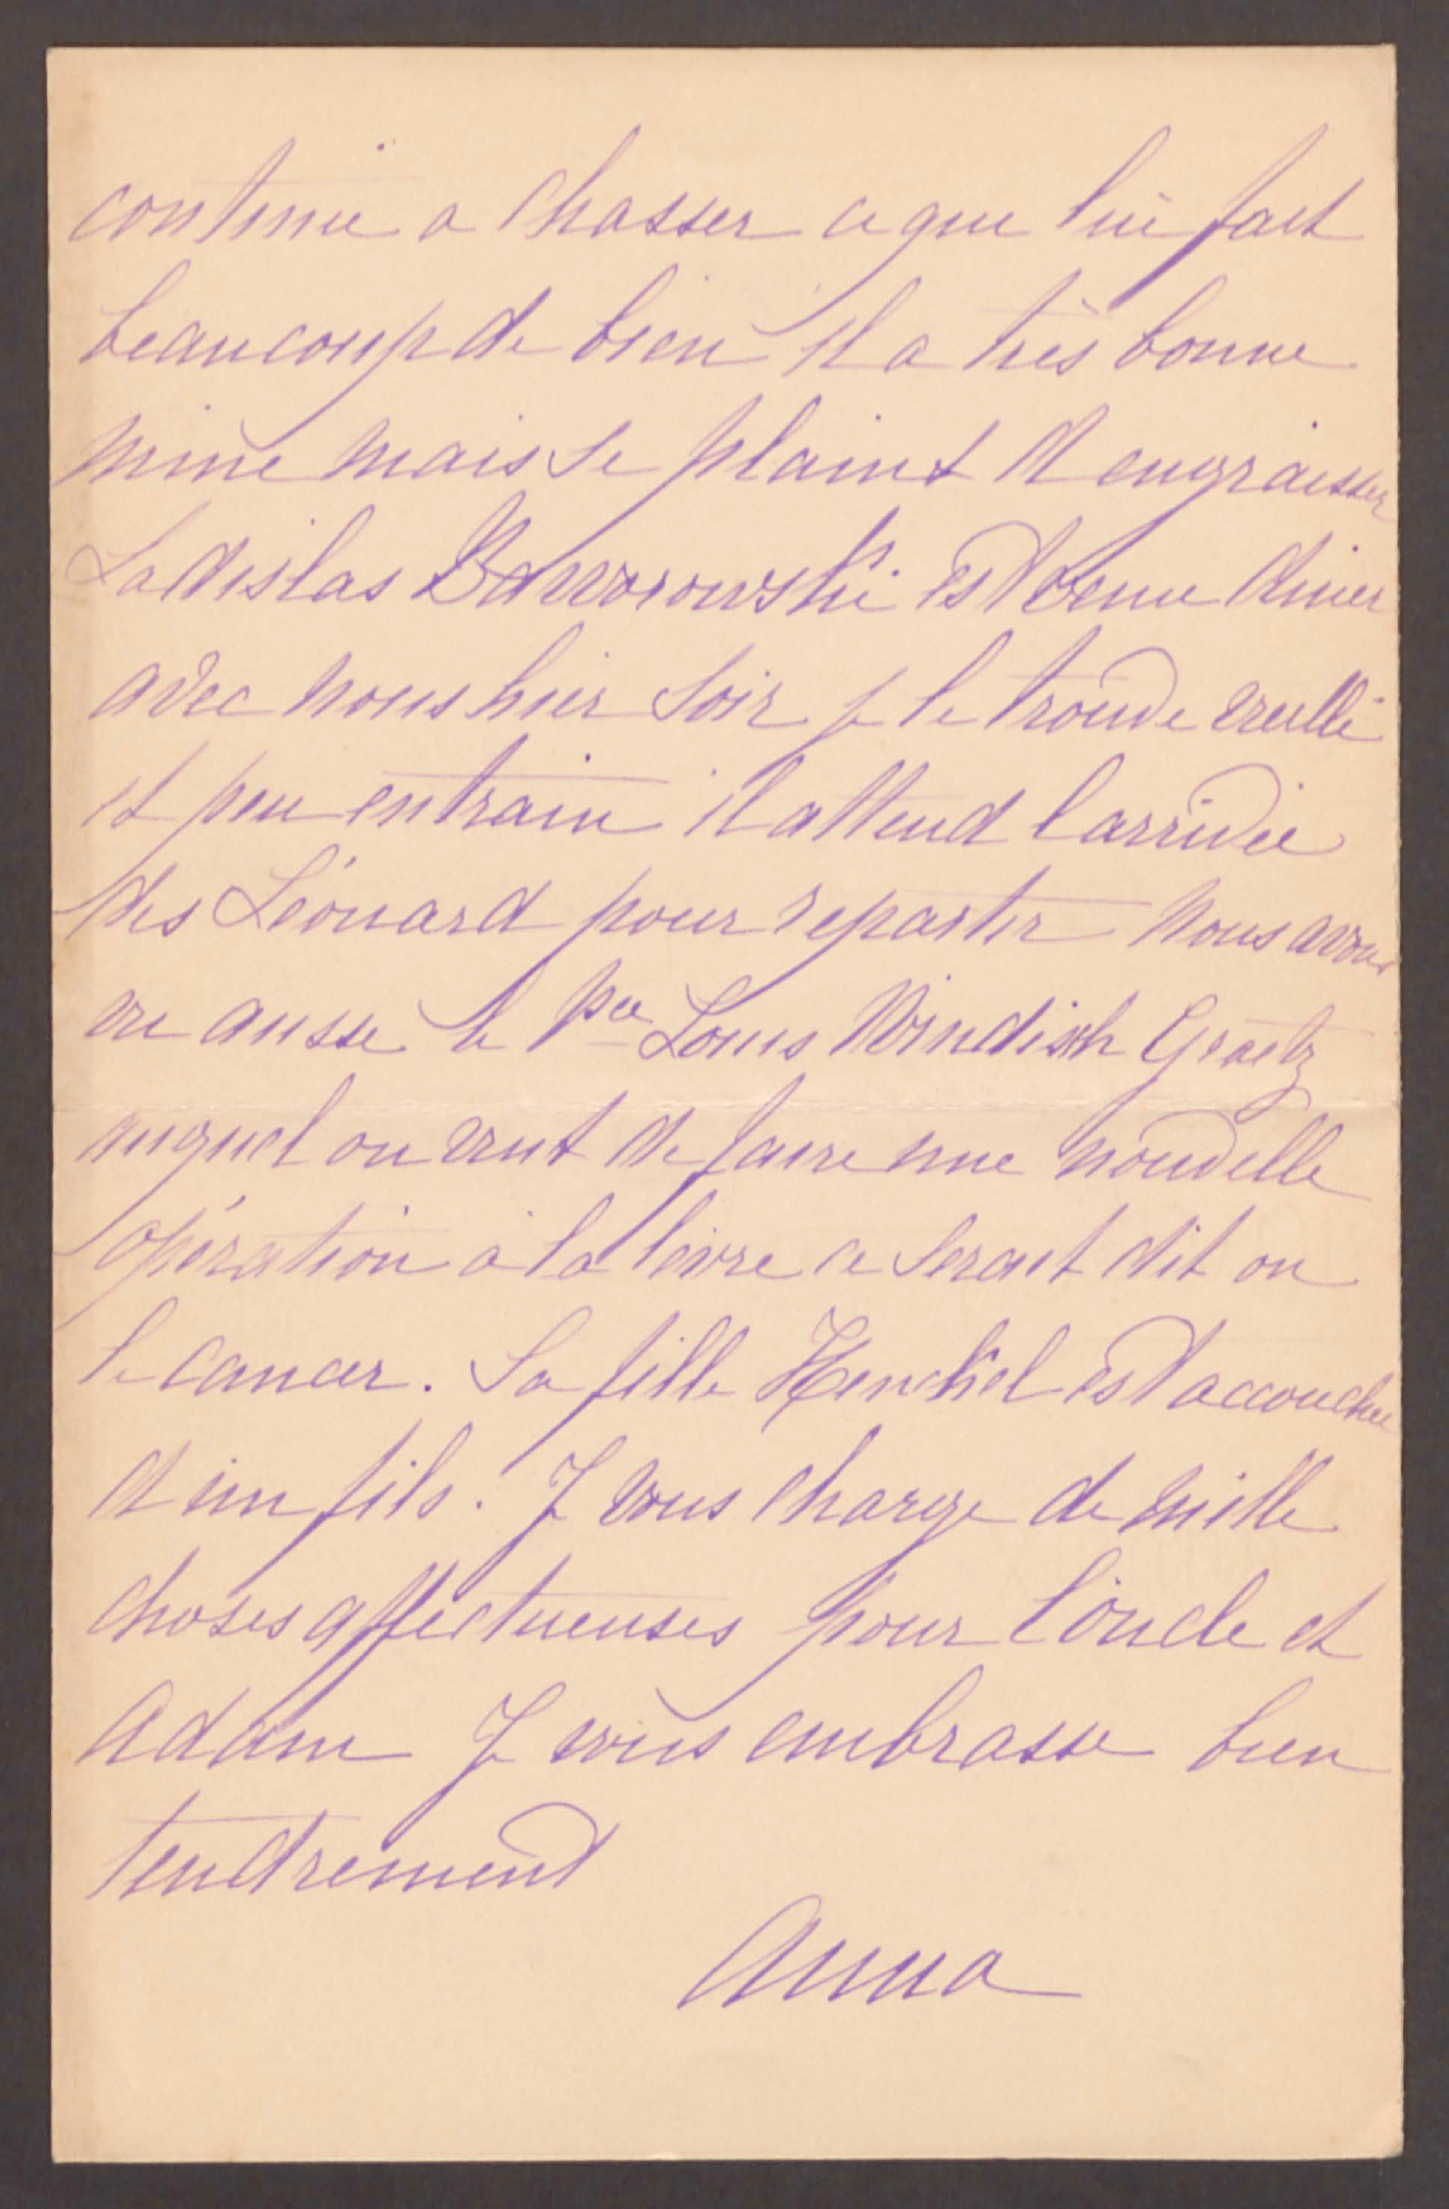 continue a chasser ce que lui fait
beaucoup de bien il a très bonne
mine mais se plaint d engraisser
Ladislas Baworowski est venu diner
avec nous hier soir je le trouve vieilli
et peu entrain il attend l arrivée
des Léonard pour repartir nous avons
vu aussi le Pce Louis Windisch Graetz
auquel on vient de faire une nouvelle
opération à la lèvre ce serait dit on
le cancer. Sa fille Henckel est accouchée
d un fils. Je vous charge de mille
choses affectueuses pour l'oncle et
Adam Je vous embrasse bien
tendrement
Anna